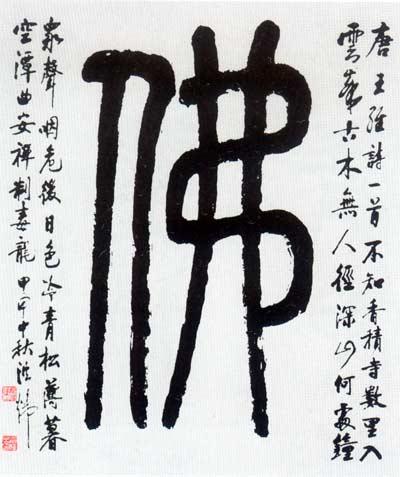 唐王維詩一首不知香積寺數里入
雲峯古木無人徑深山何處鐘
佛
泉聲咽危後日色冷青松薄暮
空潭曲安禪制毒龍 甲午中秋